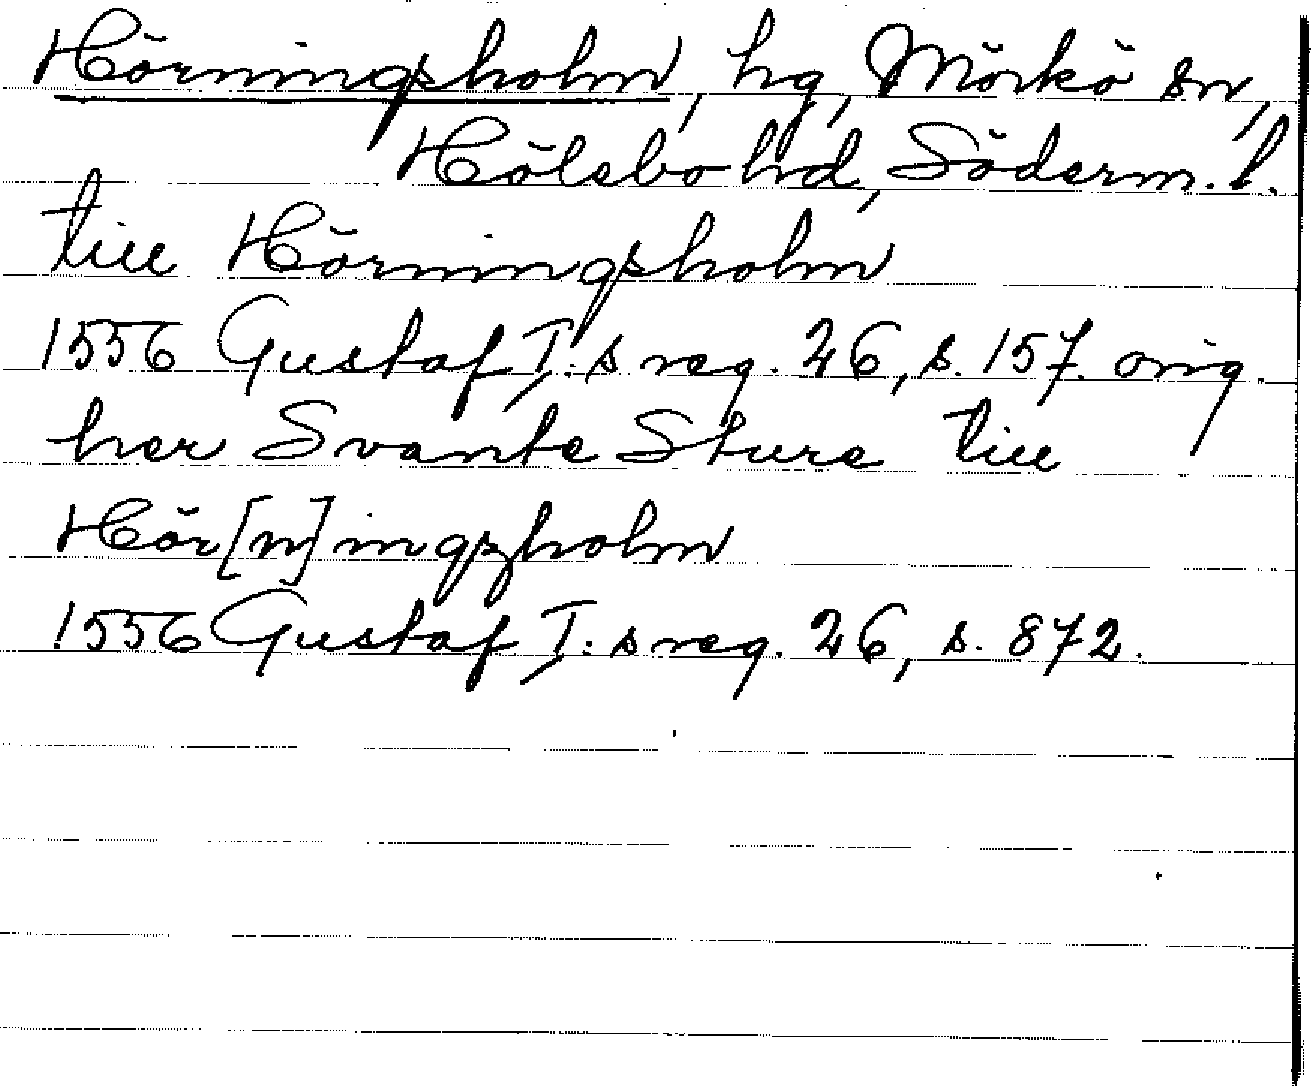 Hörningsholm, hg, Mörkö sn,
Hölebo hd, Söderm. l.
till Hörningsholm
1556 Gustaf I:s reg. 26, s. 157. orig.
her Svante Sture till
Hör[n]ingzholm
1556 Gustaf I:s reg. 26, s. 872.